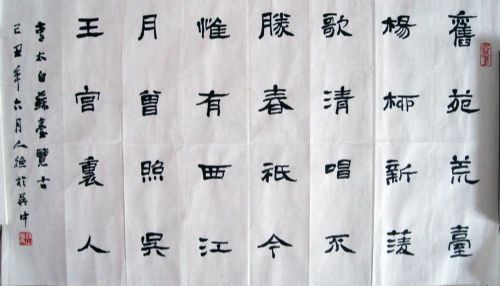 舊苑荒臺
楊柳新菱
歌清唱不
勝春祇今
惟有西江
月曾照吳
王宮裏人
李太白蘇臺覽古
己丑年六月人於吳中